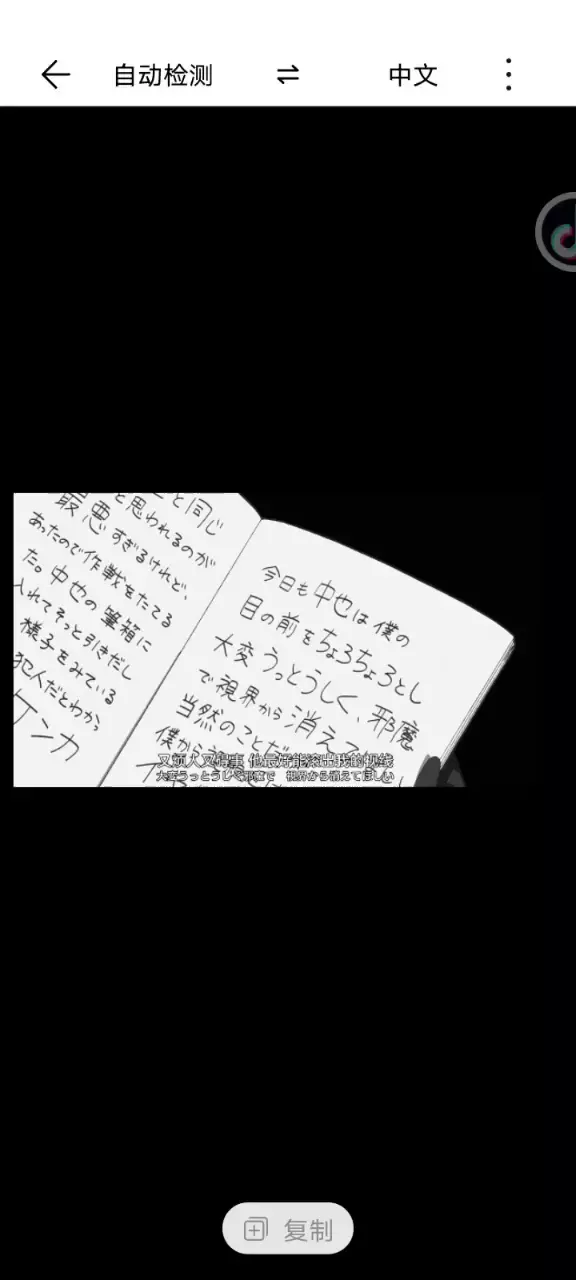 自动检测
中文
と同じ
と思われるのが
最悪すぎるけれど、
あったので作戦をたてる
た。中也の筆箱に
入れてそっと引きだし
様子をみている
犯人だとわかっ
ケンカ
今日も中也は僕の
目の前をちょろちょろとし
大変うっとうしく、邪魔
で視界から消えて
当然のことだ
僕から
又烦人又碍事 他最好能滚出我的视线
大変うっとうしく邪魔で 視界から消えてほしい
复制